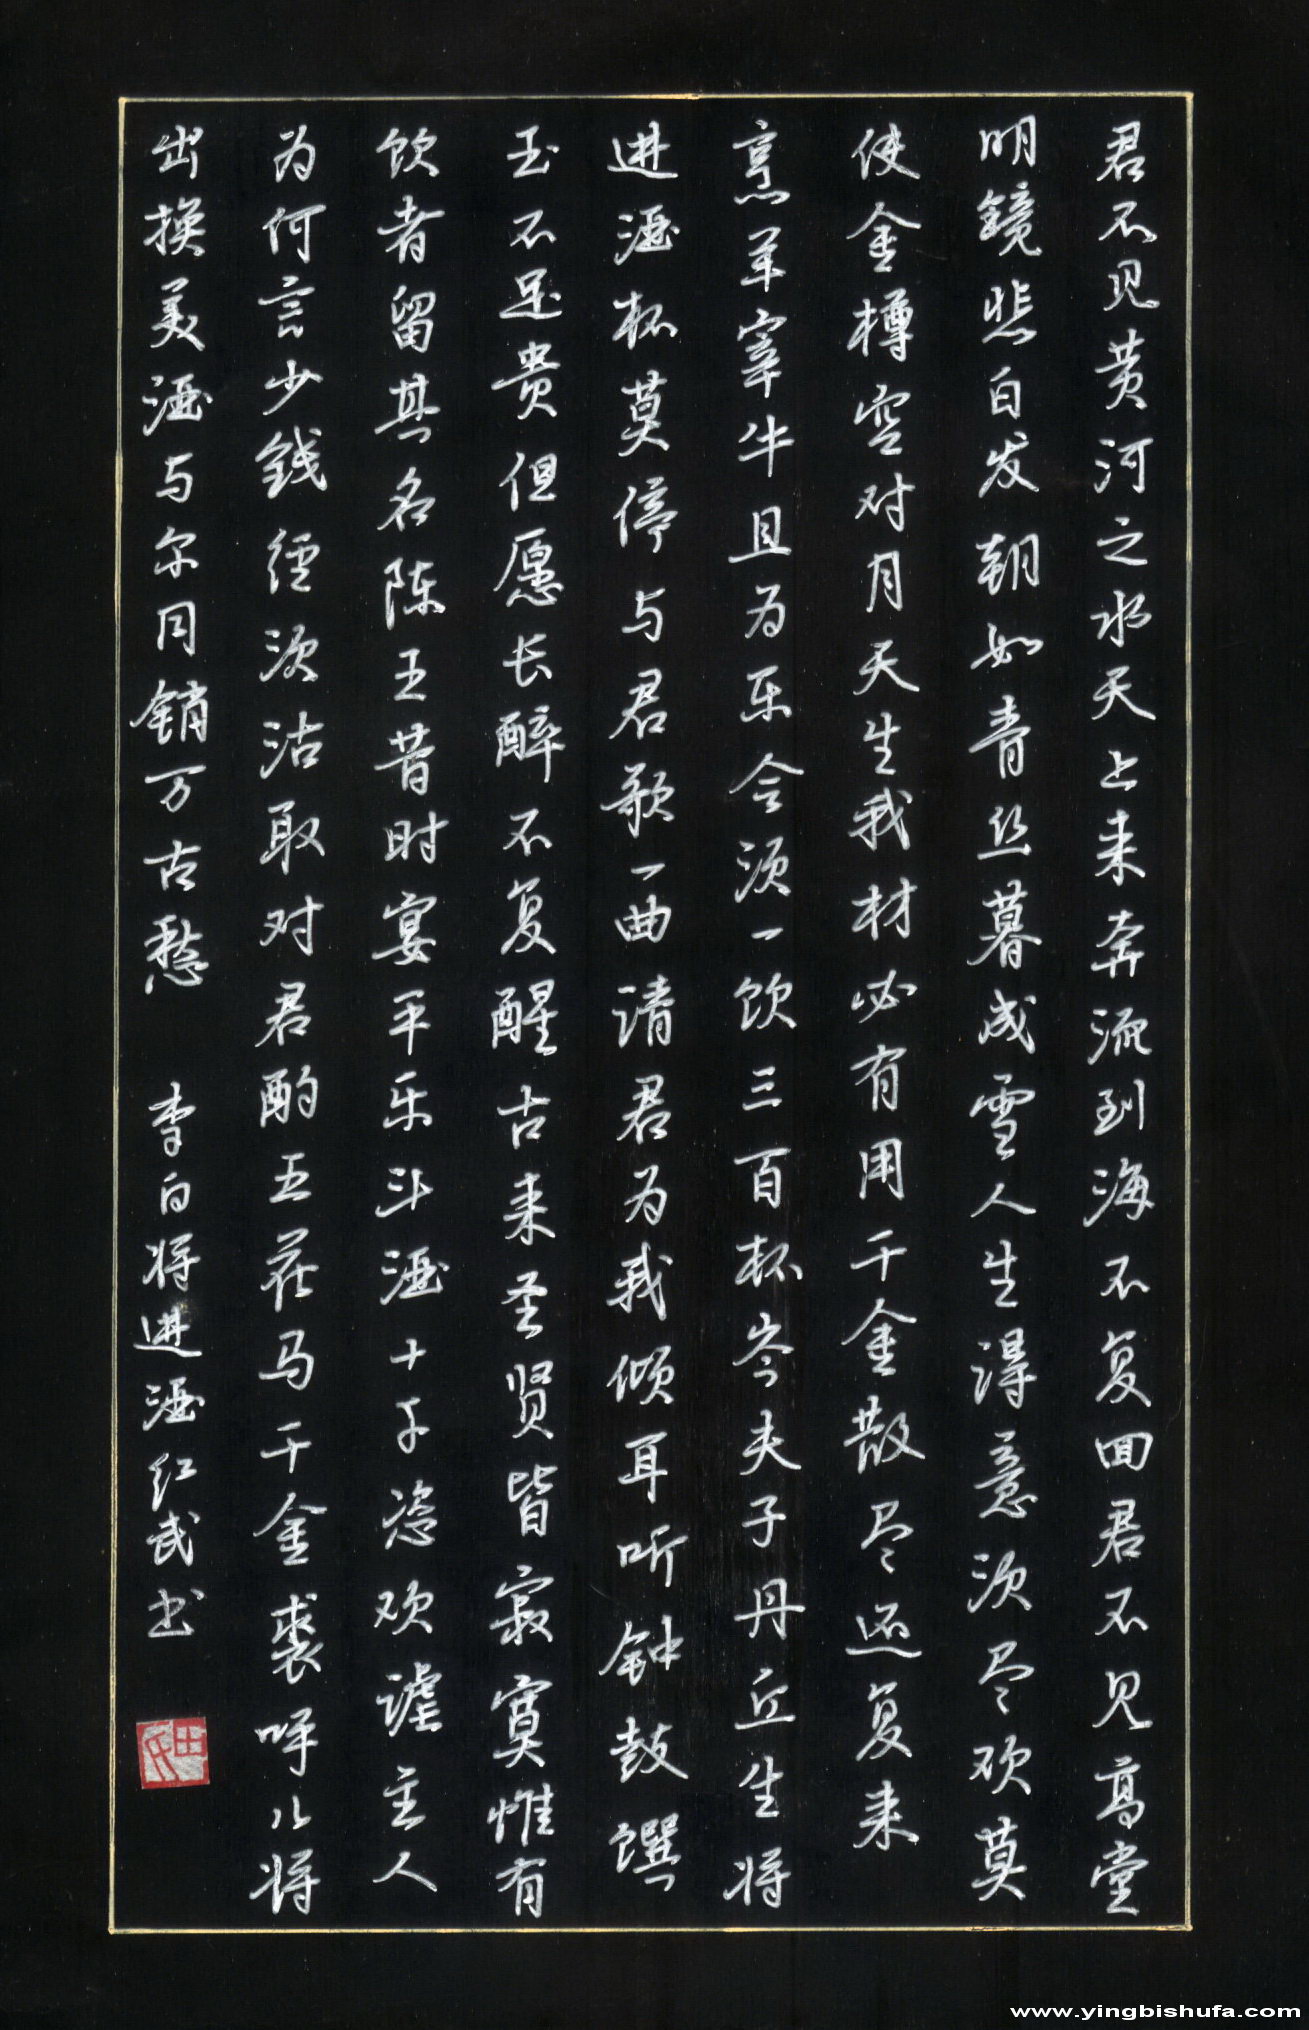 君不见黄河之水天上来奔流到海不复回君不见高堂
明镜悲白发朝如青丝暮成雪人生得意须尽欢莫
使金樽空对月天生我材必有用千金散尽还复来
烹羊宰牛且为乐会须一饮三百杯岑夫子丹丘生将
进酒杯莫停与君歌一曲请君为我倾耳听钟鼓馔
玉不足贵但愿长醉不复醒古来圣贤皆寂寞惟有
饮者留其名陈王昔时宴平乐斗酒十千恣欢谑主人
为何言少钱径须沽取对君酌五花马千金裘呼儿将
出换美酒与尔同销万古愁 李白将进酒红武书
www.yingbishufa.com